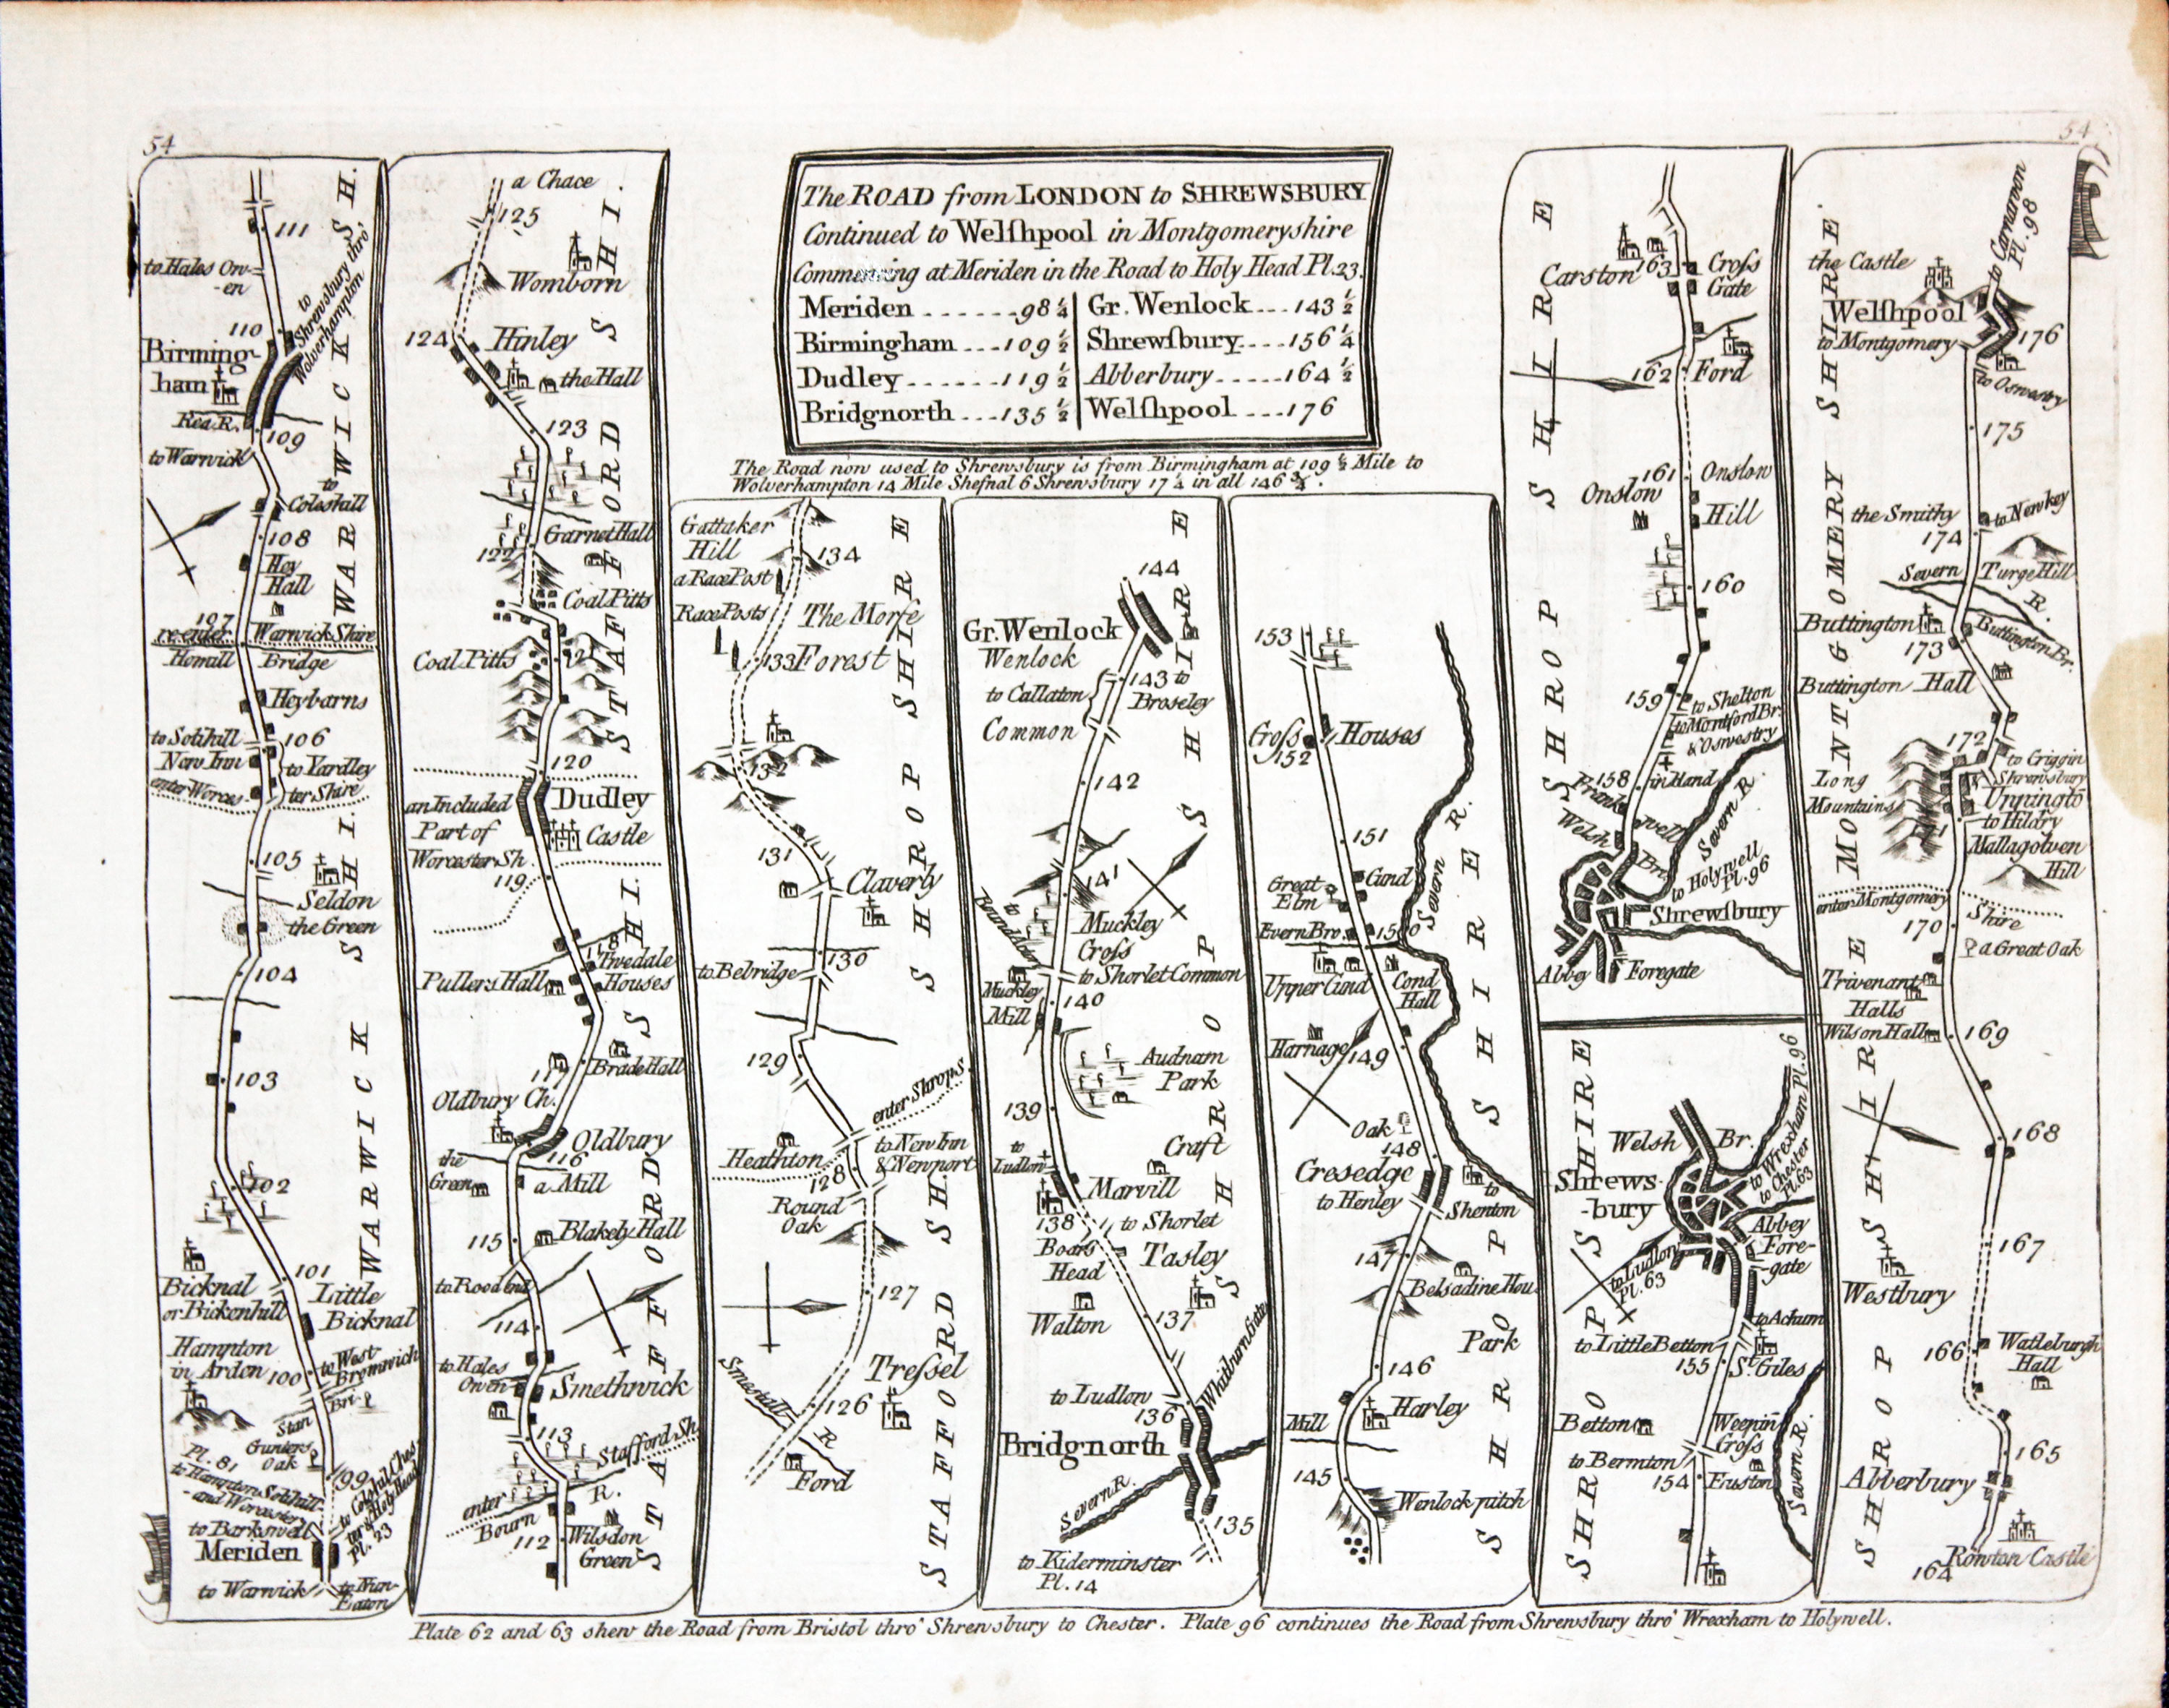 54
54
The ROAD from LONDON to SHREWSBURY
Continued to Welſhpool in Montgomeryshire
Commencing at Meriden in the Road to Holy Head Pl.23.
Meriden 98 1/4 Gr. Wenlock 143 1/2
Birmingham 109 1/2 Shrewſbury 156 1/4
Dudley 119 1/2 Abberbury 164 1/2
Bridgnorth 135 1/2 Welſhpool 176
The Road now used to Shrewsbury is from Birmingham at 109 1/2 Mile to
Wolverhampton 14 Mile Shefnal 6 Shrewsbury 17 1/4 in all 146 3/4.
WARWICK SH.
111
to Hales Ow-
-en
to
Shrewsbury thro'
Wolverhampton
110
Birming-
ham
Rea R.
109
to Warwick
to
Coleshill
108
Hey
Hall
107
re.enter Warwick Shire
Homill Bridge
Heybarns
to Solihill
106
New Inn
to Yardley
enter Worces-
ter Shire
105
Seldon
the Green
104
WARWICK SHI.
103
102
101
Bicknal
or Bickenhill
Little
Bicknal
Hampton
in Arden
100
to West
Bromwich
Stan Bri.
Gunters
Oak
99
Pl. 81
to Hampton Solihill
and Worcester
to Barkswell
Pl. 23
Meriden
to Warwick
to Nun-
Eaton
a Chace
125
Womborn
124
Hinley
the Hall
123
Garnet Hall
122
Coal Pitts
Coal Pitts
121
120
STAFFORD SHI.
an Included
Part of
Worcester Sh.
Dudley
Castle
119
118
Tivedale
Houses
Pullers Hall
117
Brade Hall
Oldbury Ch.
Oldbury
116
the
Green
a Mill
115
Blakely Hall
to Rood end
114
to Hales
Owen
Smethwick
113
Stafford Sh.
enter
Bourn R.
112
Wilsdon
Green
STAFFORD SHI.
Gattaker
Hill
134
a Race Post
Race Posts
The Morfe
133 Forest
132
131
Claverly
130
to Bebridge
129
enter Shrops.
Heathton
to New Inn
& Newport
128
Round
Oak
127
Tressel
126
Smestall R
Ford
SHROP SHIRE
STAFFORD SH.
144
Gr. Wenlock
Wenlock
143 to
Broseley
to Callaton
Common
142
141
to
Bound Acton
Muckley
Cross
to Shorlet Common
Muckley
Mill
140
Audnam
Park
139
to
Ludlow
Craft
Marvill
138
to Shorlet
Boars
Head
Tasley
Walton
137
to Ludlow
136
Whitburn Gate
Bridgnorth
Severn R.
135
to Kiderminster
Pl. 14
SHROP SHIRE
153
Cross Houses
152
151
Great
Elm
Cund
Evern Bro.
150
Severn R.
Upper Cund
Cond
Hall
Harnage
149
Oak
148
Cresedge
to Henley
to
Shenton
147
Belsadine Hou.
Park
146
Mill
Harley
145
Wenlock pitch
SHROP SHIRE
Carston
163
Cross
Gate
162
Ford
161
Onslow
Onslow
Hill
160
159
to Shelton
to Montford Br.
& Oswestry
158
in Hand
Frank well
Welsh Br.
Severn R.
to Holywell
Pl. 96
Shrewſbury
Abby Foregate
SHROP SHIRE
Welsh Br.
to Wrexham Pl. 96
to Chester
Pl. 63
Shrews-
-bury
Abbey
Fore-
-gate
to Ludlow
Pl. 63
to Acham
to Little Betton
155
St. Giles
Betton
Weeping
Cross
to Bermton
154
Euston
Severn R.
SHROP SHIRE
the Castle
to Carnarvon
Pl. 98
Welſhpool
to Montgomery
176
to Oswestry
175
the Smithy
to Newkey
174
Severn R.
Turge Hill
Buttington
Buttington Br.
173
Buttington Hall
172
to Criggin
Shrewsbury
Long
Mountains
171
to Hildry
Mallagolven
Hill
enter Montgomery Shire
170
a Great Oak
Trivenant
Halls
Wilson Hall
169
168
167
Westbury
166
Watleburgh
Hall
165
Abberbury
Rowton Castle
164
MONTGOMERY SHIRE
SHROP SHIRE
Plate 62 and 63 shew the Road from Bristol thro' Shrewsbury to Chester. Plate 96 continues the Road from Shrewsbury thro' Wrexham to Holywell.